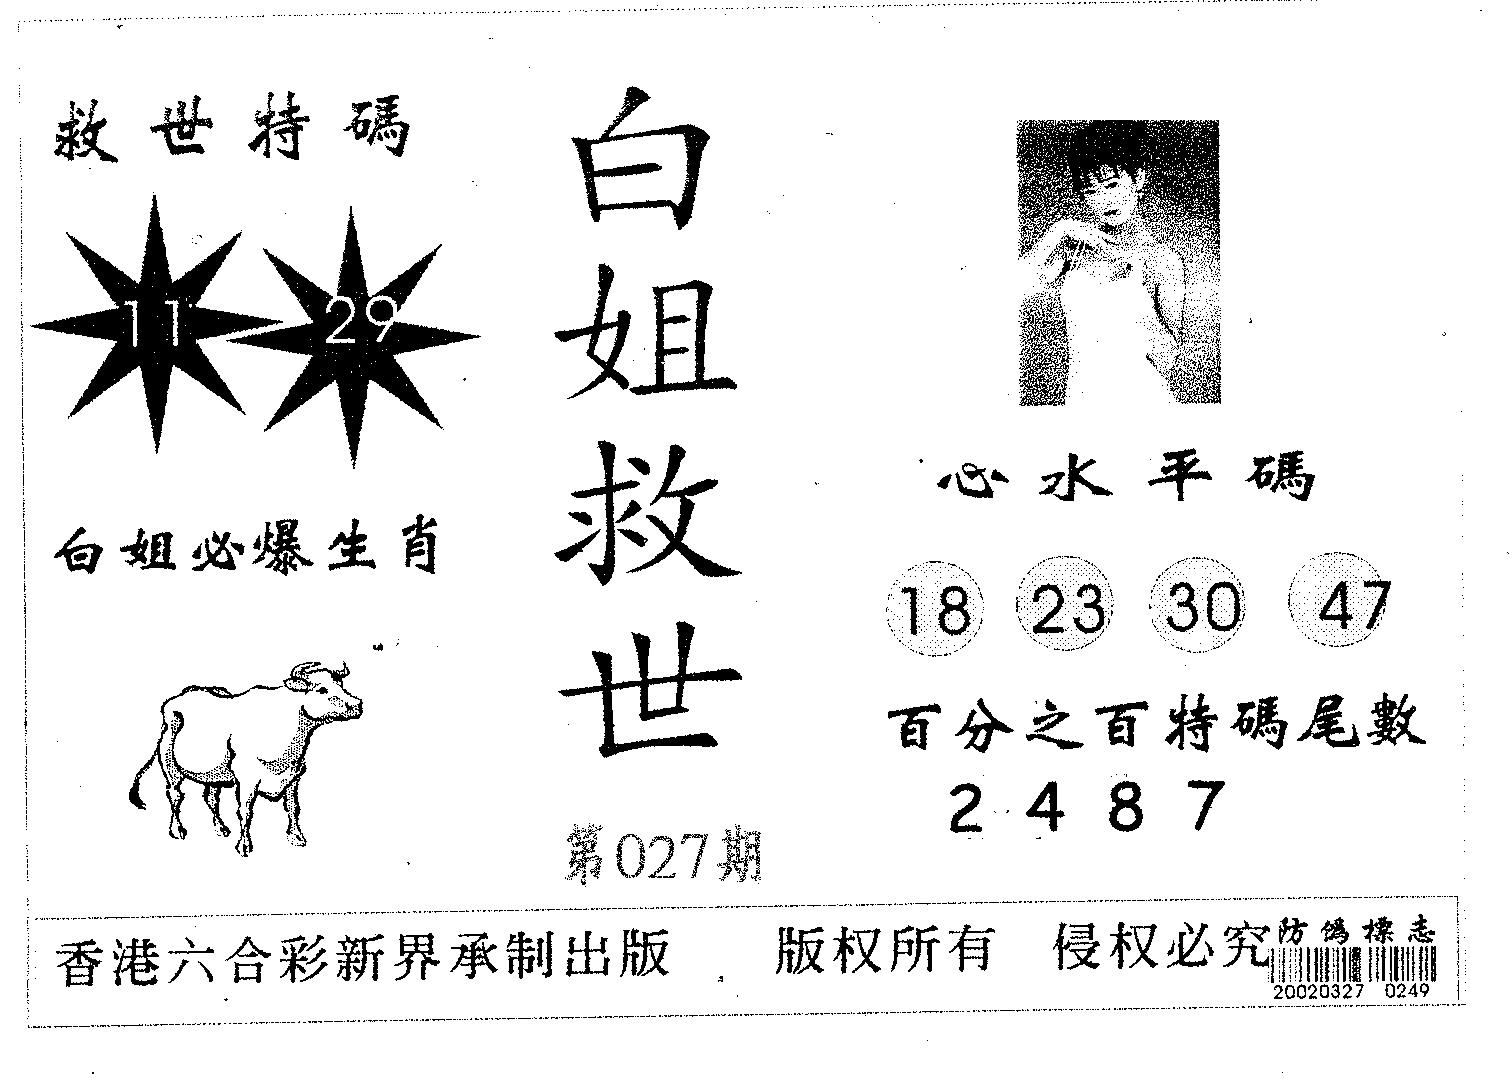 救世特碼
11 29
白姐必爆生肖
白姐救世
第027期
心水平碼
18 23 30 47
百分之百特碼尾數
2 4 8 7
香港六合彩新界承制出版 版权所有 侵权必究
防偽標志
20020327 0249